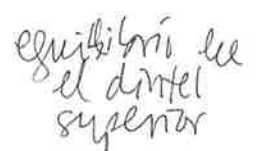 equilibrio en
el dintel
superior